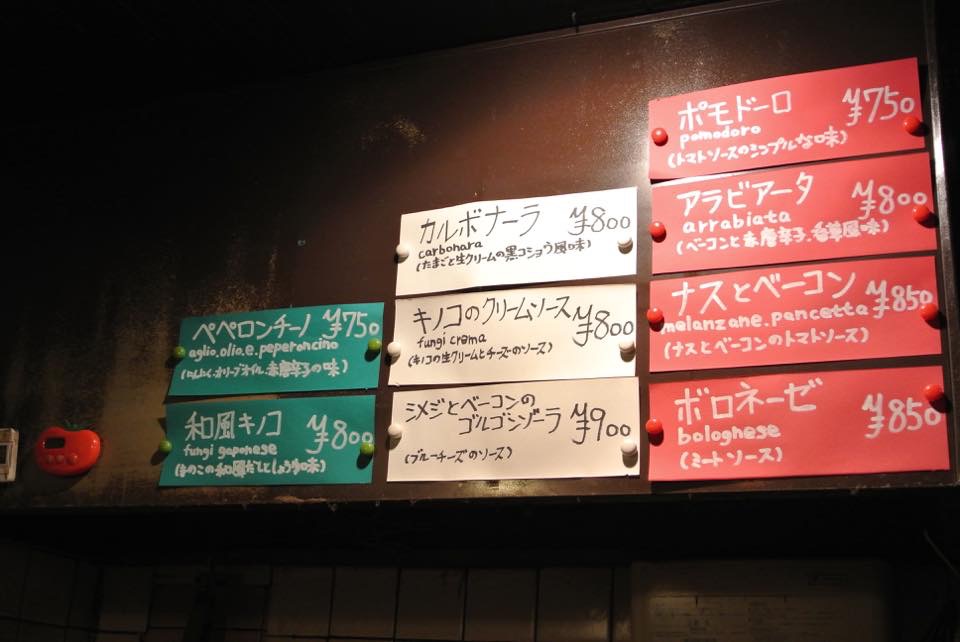 ペペロンチーノ ¥750
aglio.olio.e.peperoncino
(にんにく.オリーブオイル.赤唐辛子の味)
和風キノコ ¥800
fungi gaponese
(きのこの和風だしとしょう油味)
カルボナーラ ¥800
carbonara
(たまごと生クリームの黒コショウ風味)
キノコのクリームソース ¥800
fungi crema
(キノコの生クリームとチーズのソース)
シメジとベーコンの
ゴルゴンゾーラ ¥900
(ブルーチーズのソース)
ポモドーロ ¥750
pomodoro
(トマトソースのシンプルな味)
アラビアータ ¥800
arrabiata
(ベーコンと赤唐辛子.香草風味)
ナスとベーコン ¥850
melanzane.pancetta
(ナスとベーコンのトマトソース)
ボロネーゼ ¥850
bolognese
(ミートソース)